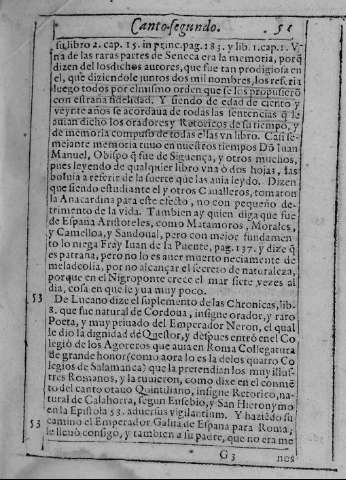 Canto segundo. 51
su libro 2. cap. 15. in princ. pag. 183. y lib. 1. cap. 1. V-
na de las raras partes de Seneca era la memoria, porq̃
dizen del los dichos autores, que fue tan prodigiosa en
el, que diziendole juntos dos mil nombres, los referia
luego todos por el mismo orden que se los propusierõ
con estraña fidelidad. Y siendo de edad de ciento y
veynte años se acordaua de todas las sentencias q̃ le
auian dicho los oradores y Retoricos de su tiempo, y
de memoria compuso de todas ellas vn libro. Casi se-
mejante memoria tuuo en nuestros tiempos Dõ Iuan
Manuel, Obispo q̃ fue de Siguença, y otros muchos,
pues leyendo de qualquier libro vna ò dos hojas, las
boluia a referir de la suerte que las auia leydo. Dizen
que siendo estudiante el y otros Caualleros, tomaron
la Anacardina para este efecto, no con pequeño de-
trimento de la vida. Tambien ay quien diga que fue
de España Aristoteles, como Matamoros, Morales,
y Camelloa, y Sandoual, pero con mejor fundamen-
to lo niega Fray Iuan de la Puente, pag. 137. y dize q̃
es patraña, pero no lo es auer muerto neciamente de
melãcolia, por no alcançar el secreto de naturaleza,
porque en el Nigroponte crece el mar siete vezes al
dia, cosa en que le yua muy poco.
53 De Lucano dize el suplemento de las Chronicas, lib.
8. que fue natural de Cordoua, insigne orador, y raro
Poeta, y muy priuado del Emperador Neron, el qual
le dio la dignidad de Questor, y despues entrò en el Co
legiò de los Agoreros que auia en Roma Collegiatura
de grande honor (como aora lo es la de los quatro Co
legios de Salamanca) que la pretendian los muy illus-
tres Romanos, y la tuuieron, como dixe en el commẽ
to del canto otauo Quintiliano, insigne Retorico, na-
tural de Calahorra, segun Eusebio, y San Hieronymo
en la Epistola 53. aduersus vigilantium. Y haziẽdo su
53 camino el Emperador Galua de España para Roma,
le lleuò consigo, y tambien a su padre, que no era me
G 3 nos